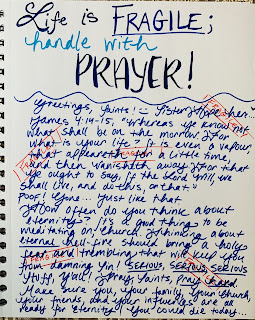 Life is FRAGILE;
handle with
PRAYER!
Greetings, Saints! :) Sister Hope here...
James 4:14-15, "Whereas ye know not
what shall be on the morrow. For
what is your life? It is even a vapour,
that appeareth for a little time,
and then vanisheth away. For that
ye ought to say, If the Lord will, we
shall live, and do this, or that."
POOF! Gone... Just like that.
How often do you think about
eternity? It's a good thing to be
meditating on, Church. Thinking about
eternal hell-fire should bring a holy
fear and trembling that will keep you
from damning sin! SERIOUS, SERIOUS, SERIOUS
stuff, y'all! Pray, Saints, pray hard.
Make sure you, your family, your church,
your friends, and your influences are
ready for eternity. You could die today...